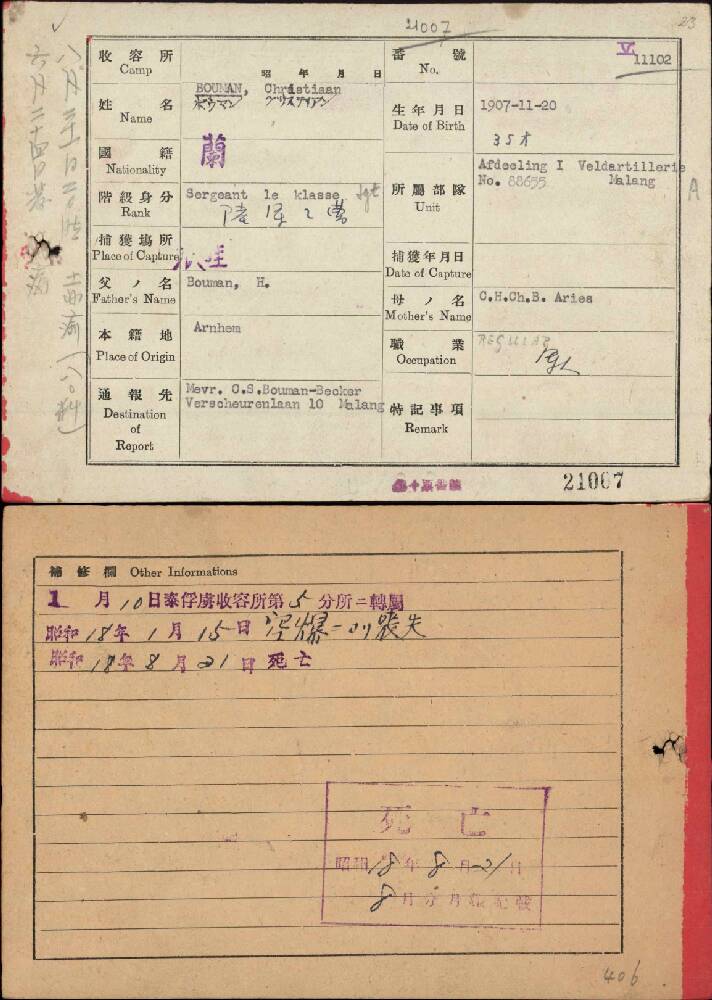 21007
23
收容所
Camp
昭 年 月 日
番號
No.
11102
姓名
Name
BOUMAN, Christiaan
ボウマン クリスティアン
生年月日
Date of Birth
1907-11-20
35才
國籍
Nationality
蘭
階級身分
Rank
Sergeant 1e klasse Sgt
所屬部隊
Unit
Afdeeling I Veldartillerie
No. 88655 Malang
A
捕獲場所
Place of Capture
爪哇
捕獲年月日
Date of Capture
父ノ名
Father's Name
Bouman, H.
母ノ名
Mother's Name
C.H.Ch.B. Aries
本籍地
Place of Origin
Arnhem
職業
Occupation
REGULAR
軍人
通報先
Destination
of
Report
Mevr. C.S.Bouman-Becker
Verscheurenlaan 10 Malang
特記事項
Remark
21007
補修欄 Other Informations
1月10日泰俘虜收容所第5分所ニ轉屬
昭和18年1月15日
昭和18年8月21日死亡
死亡
昭和18年8月21日
8月分月報記載
406